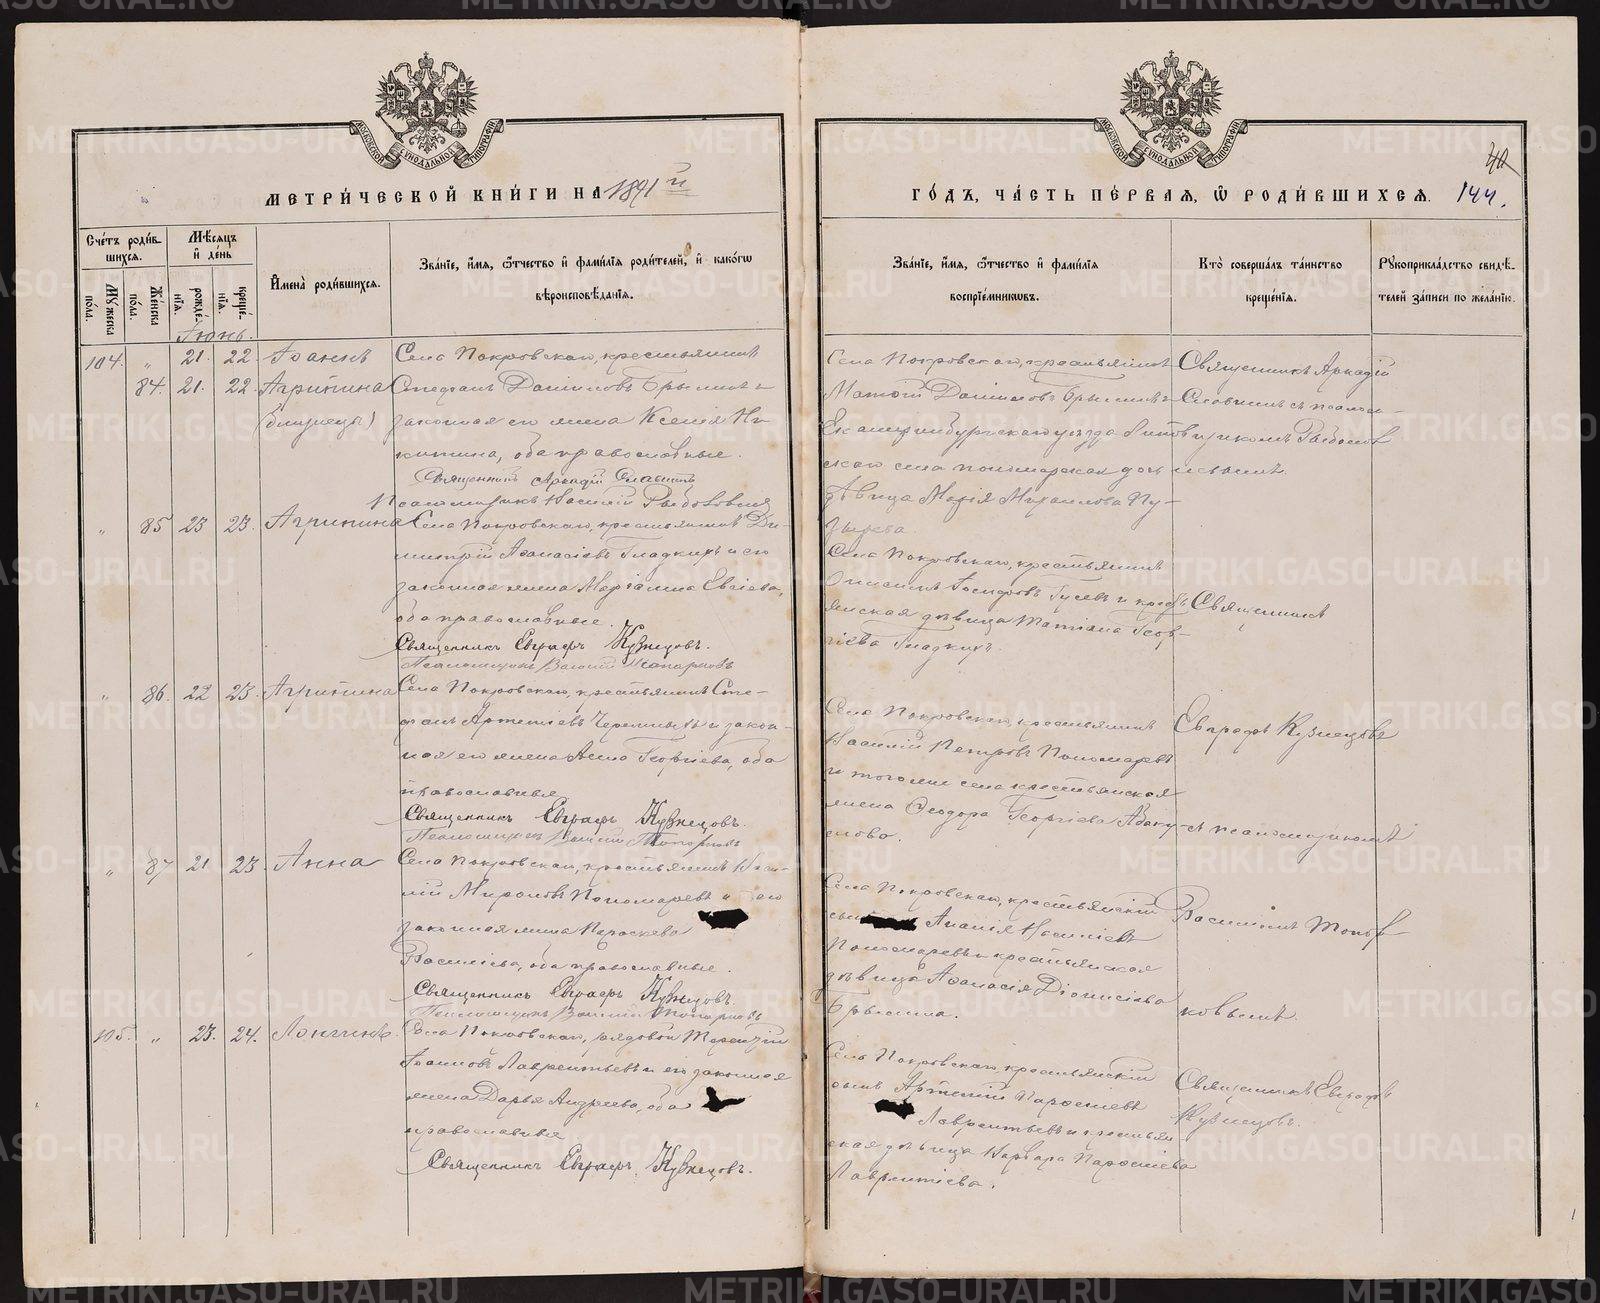 МОСКОВСКОЙ СѴНОДАЛЬНОЙ ТИПОГРАФІИ
МЕТРИ́ЧЕСКОЙ КНИ́ГИ НА 1891 й
Сче́тъ роди́вшихся.
Мѣ́сяцъ и҆ де́нь
Му́жеска по́ла.
Же́нска по́ла.
рожде́нїѧ.
креще́нїѧ.
И҆мена̀ роди́вшихся.
Зва́нїе, и҆́мѧ, ѻ҆́тчество и҆ фами́лїѧ роди́телей, и҆ како́гѡ
вѣроисповѣ́данїѧ.
Іюнь.
104. „ 21. 22. Іоаннъ Села Покровскаго, крестьянинъ
84. 21. 22. Агрипина Стефанъ Даниловъ Брылинъ и
(близнецы) законная его жена Ксенія Ни-
китина, оба православные.
Священникъ Аркадій Славнинъ
Псаломщикъ Василій
„ 85 23 23. Агрипина Села Покровскаго, крестьянинъ Ди-
митрій Аѳанасіевъ Гладкихъ и его
законная жена Маріанна Евсіева,
оба православные.
Священникъ Евграфъ Кузнецовъ.
Псаломщикъ Василій Топорковъ
„ 86. 22 23. Агрипина Села Покровскаго, крестьянинъ Сте-
фанъ Артеміевъ Черемныхъ и закон-
ная его жена Анна Георгіева, оба
православные
Священникъ Евграфъ Кузнецовъ.
Псаломщикъ Василій Топорковъ
„ 87 21 23. Анна Села Покровскаго, крестьянинъ Васи-
лій Мироновъ Пономаревъ и его
законная жена Параскева
Василіева, оба православные.
Священникъ Евграфъ Кузнецовъ.
Псаломщикъ Василій Топорковъ
105. „ 23. 24. Лонгинъ. Села Покровскаго, рядовой Терентій
Іоанновъ Лаврентьевъ и его законная
жена Дарья Андреева, оба
православные
Священникъ Евграфъ Кузнецовъ.
МОСКОВСКОЙ СѴНОДАЛЬНОЙ ТИПОГРАФІИ
40
ГО́ДЪ, ЧА́СТЬ ПЕ́РВАЯ, Ѽ РОДИ́ВШИХСЯ. 144.
Зва́нїе, и҆́мѧ, ѻ҆́тчество и҆ фами́лїѧ
воспрїе́мникѡвъ.
Кто̀ соверша́лъ та́инство
креще́нїѧ.
Рꙋкоприкла́дство свидѣ́-
телей за́писи по жела́нїю.
Села Покровскаго, крестьянинъ
Матѳій Даниловъ Брылинъ и
Екатеринбургскаго уѣзда
скаго села пономарская дочь
дѣвица Марія Михаилова Пу-
зырева
Священникъ Аркадій
Славнинъ съ псалом-
щикомъ
Села Покровскаго, крестьянинъ
Гусевъ и кресть-
янская дѣвица Татіана Геор-
гіева Гладкихъ.
Священникъ
Села Покровскаго, крестьянинъ
Василій Петровъ Пономаревъ
и того же села крестьянская
жена Ѳеодора Георгіева Абаку-
мова.
Евграфъ Кузнецовъ
съ псаломщикомъ
Села Покровскаго, крестьянскій
сынъ Ананія Василіевъ
Пономаревъ и крестьянская
дѣвица Аѳанасія Діонисіева
Брылина.
Василіемъ Топор-
ковымъ.
Села Покровскаго, крестьянскій
сынъ Артемій
Лаврентьевъ и крестьян-
ская дѣвица Варвара
Лаврентіева.
Священникъ Евграфъ
Кузнецовъ.
METRIKI.GASO-URAL.RU